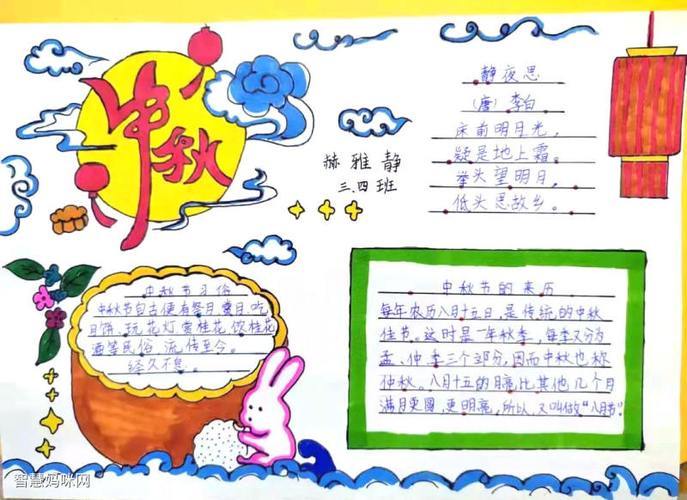 中秋
静夜思
（唐）李白
床前明月光，
疑是地上霜。
举头望明月，
低头思故乡。
赫雅静
三.四班
中秋节习俗
中秋节自古便有祭月，赏月，吃
月饼、玩花灯赏桂花、饮桂花
酒等民俗，流传至今。
经久不息。
中秋节的来历
每年农历八月十五日，是传统的中秋
佳节。这时是一年秋季，每季又分为
孟、仲、季三个部分，因而中秋也称
仲秋。八月十五的月亮比其他几个月
满月更圆，更明亮，所以，又叫做“八月节”
智慧妈咪网